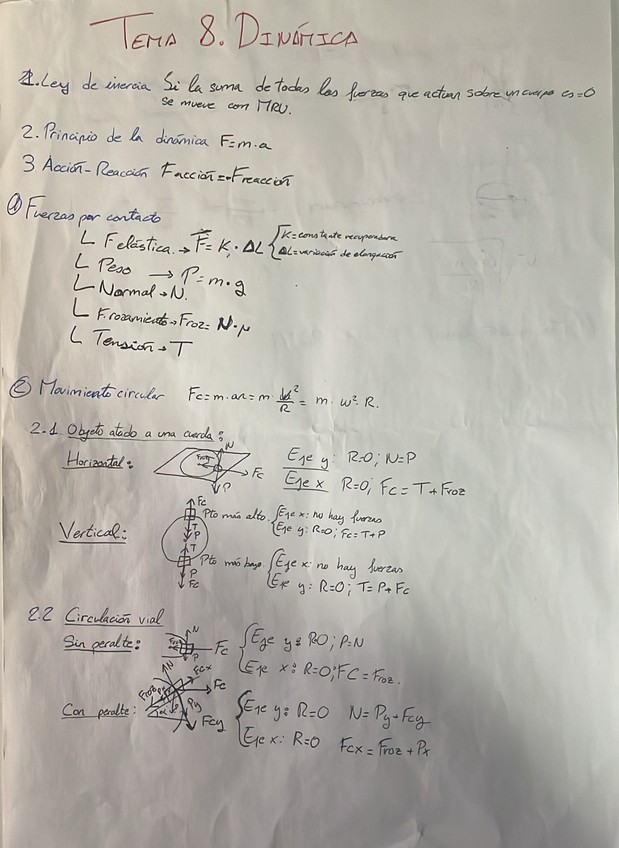 TEMA 8. DINÁMICA
1. Ley de inercia Si la suma de todas las fuerzas que actuan sobre un cuerpo es=0
se mueve con MRU.
2. Principio de la dinámica F=m·a
3 Acción-Reacción Facción=-Freacción
① Fuerzas por contacto
L F elástica → F = K · ΔL { K=constante recuperadora
ΔL=variación de elongación
L Peso → P=m·g
L Normal → N.
L F.rozamiento → Froz= N·μ
L Tensión → T
② Movimiento circular Fc=m·an=m·v²/R = m·ω²·R.
2.1 Objeto atado a una cuerda:
Horizontal: N Froz Fc P Eje y: R=0; N=P
Eje x R=0; Fc=T+Froz
Vertical: Fc T P Pto más alto. { Eje x: no hay fuerzas
Eje y: R=0; Fc=T+P
T P Fc Pto más bajo. { Eje x: no hay fuerzas
Eje y: R=0; T=P+Fc
2.2 Circulación vial
Sin peralte: N Froz P Fc { Eje y: R=0; P=N
Eje x: R=0; FC=Froz.
Con peralte: N Fcx Fc Froz Px P Py Fcy α { Eje y: R=0 N=Py+Fcy
Eje x: R=0 Fcx=Froz+Px